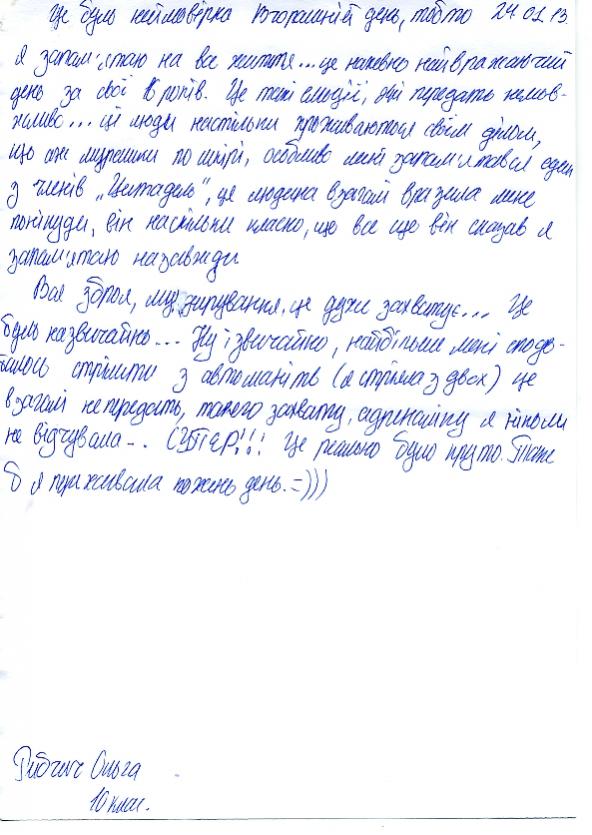 Це було неймовірно Вчорашній день, тобто 24.01.13
я запам'ятаю на все життя... це напевно найвражаючий
день за свої 16 років. Це такі емоції, які передать немож-
жливо... ці люди настільки проживаються своїм ділом,
що аж мурашки по шкірі, особливо мені запам'ятався один
з членів „Цитадель", це людина взагалі вразила мене
понікуди, він настільки класно, що все що він сказав я
запам'ятаю назавжди
Вся зброя, мундирування, це дуже захватує... Це
було незвичайно... Ну і звичайно, найбільше мені сподо-
балось стріляти з автоматів (я стріляла з двох) це
взагалі не передать, такого захвату, адреналіну я ніколи
не відчувала... СУПЕР!!! Це реально було круто. Таке
б я переживала кожень день. =)))
Ольга
10 клас.